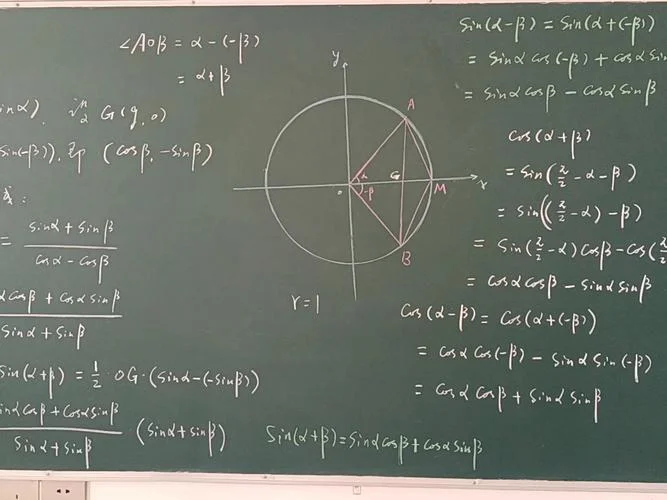 ∠AOβ = α - (-β)
= α + β
sinα), 设 G(g, 0)
sin(-β)), 即 (cosβ, -sinβ)
= (sinα + sinβ)/(cosα - cosβ)
αcosβ + cosαsinβ / sinα + sinβ
sin(α+β) = 1/2 · OG · (sinα - (-sinβ))
sinαcosβ + cosαsinβ / sinα + sinβ · (sinα + sinβ)
y
A
α
-β
o
G
M
x
B
r = 1
sin(α+β) = sinαcosβ + cosαsinβ
sin(α-β) = sin(α+(-β))
= sinαcos(-β) + cosαsin
= sinαcosβ - cosαsinβ
cos(α+β)
= sin(π/2 - α - β)
= sin((π/2 - α) - β)
= sin(π/2 - α)cosβ - cos(π/2
= cosαcosβ - sinαsinβ
cos(α-β) = cos(α+(-β))
= cosαcos(-β) - sinαsin(-β)
= cosαcosβ + sinαsinβ